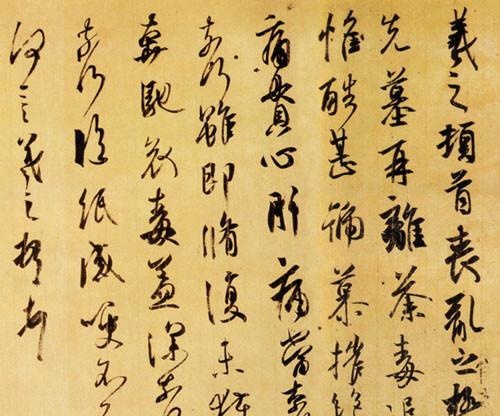 羲之頓首喪亂之極
先墓再離荼毒追
惟酷甚號慕摧絶
痛貫心肝痛當奈
奈何雖即脩復未獲
奔馳哀毒益深奈
奈何臨紙感哽不
何言羲之頓首